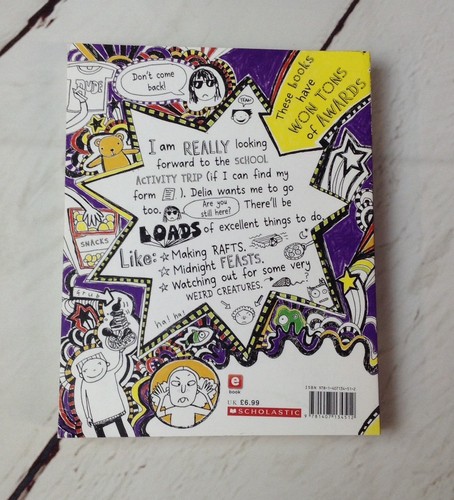 Don't come
back!
YEAH!
These books
have
WON TONS
of AWARDS
I am REALLY looking
forward to the SCHOOL
ACTIVITY TRIP (if I can find my
form ). Delia wants me to go
too. Are you
still here? There'll be
LOADS of excellent things to do
Like:
Making RAFTS.
Midnight FEASTS.
Watching out for some very
WEIRD CREATURES.
SNACKS
ha! ha!
e
book
UK £6.99
SCHOLASTIC